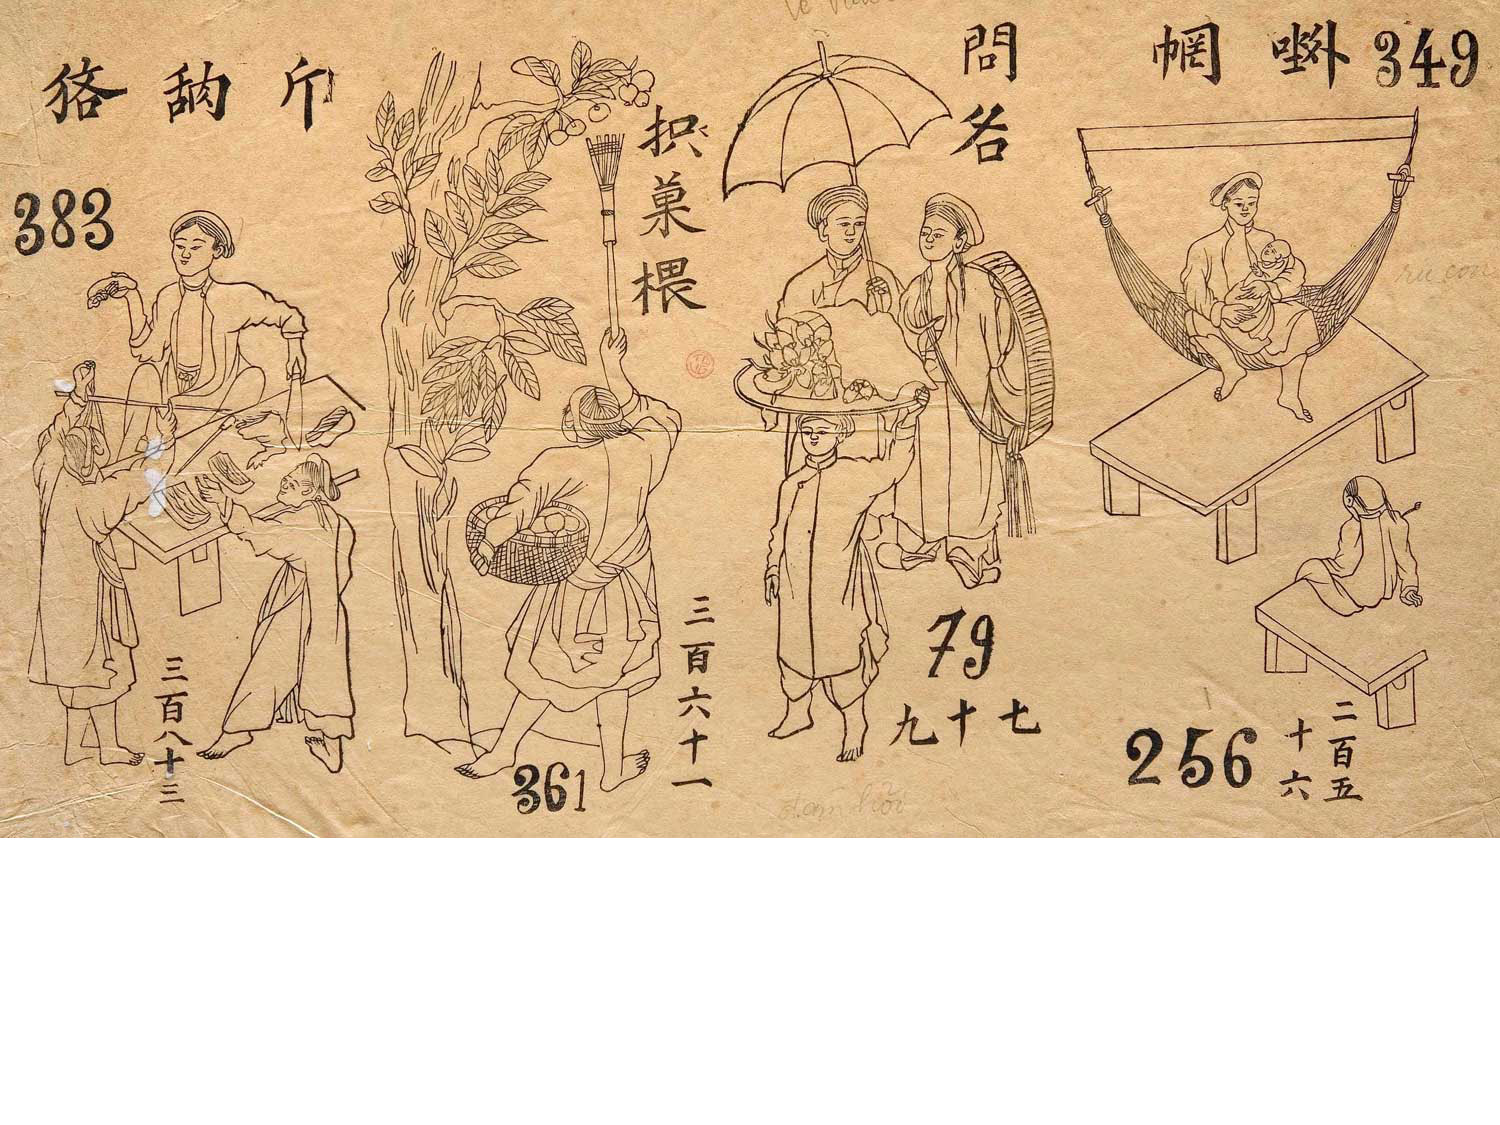 349
問
名
ru con
斤
383
菓
椳
三百八十三
三百六十一
361
79
七十九
256
二百五
十六
đám hỏi